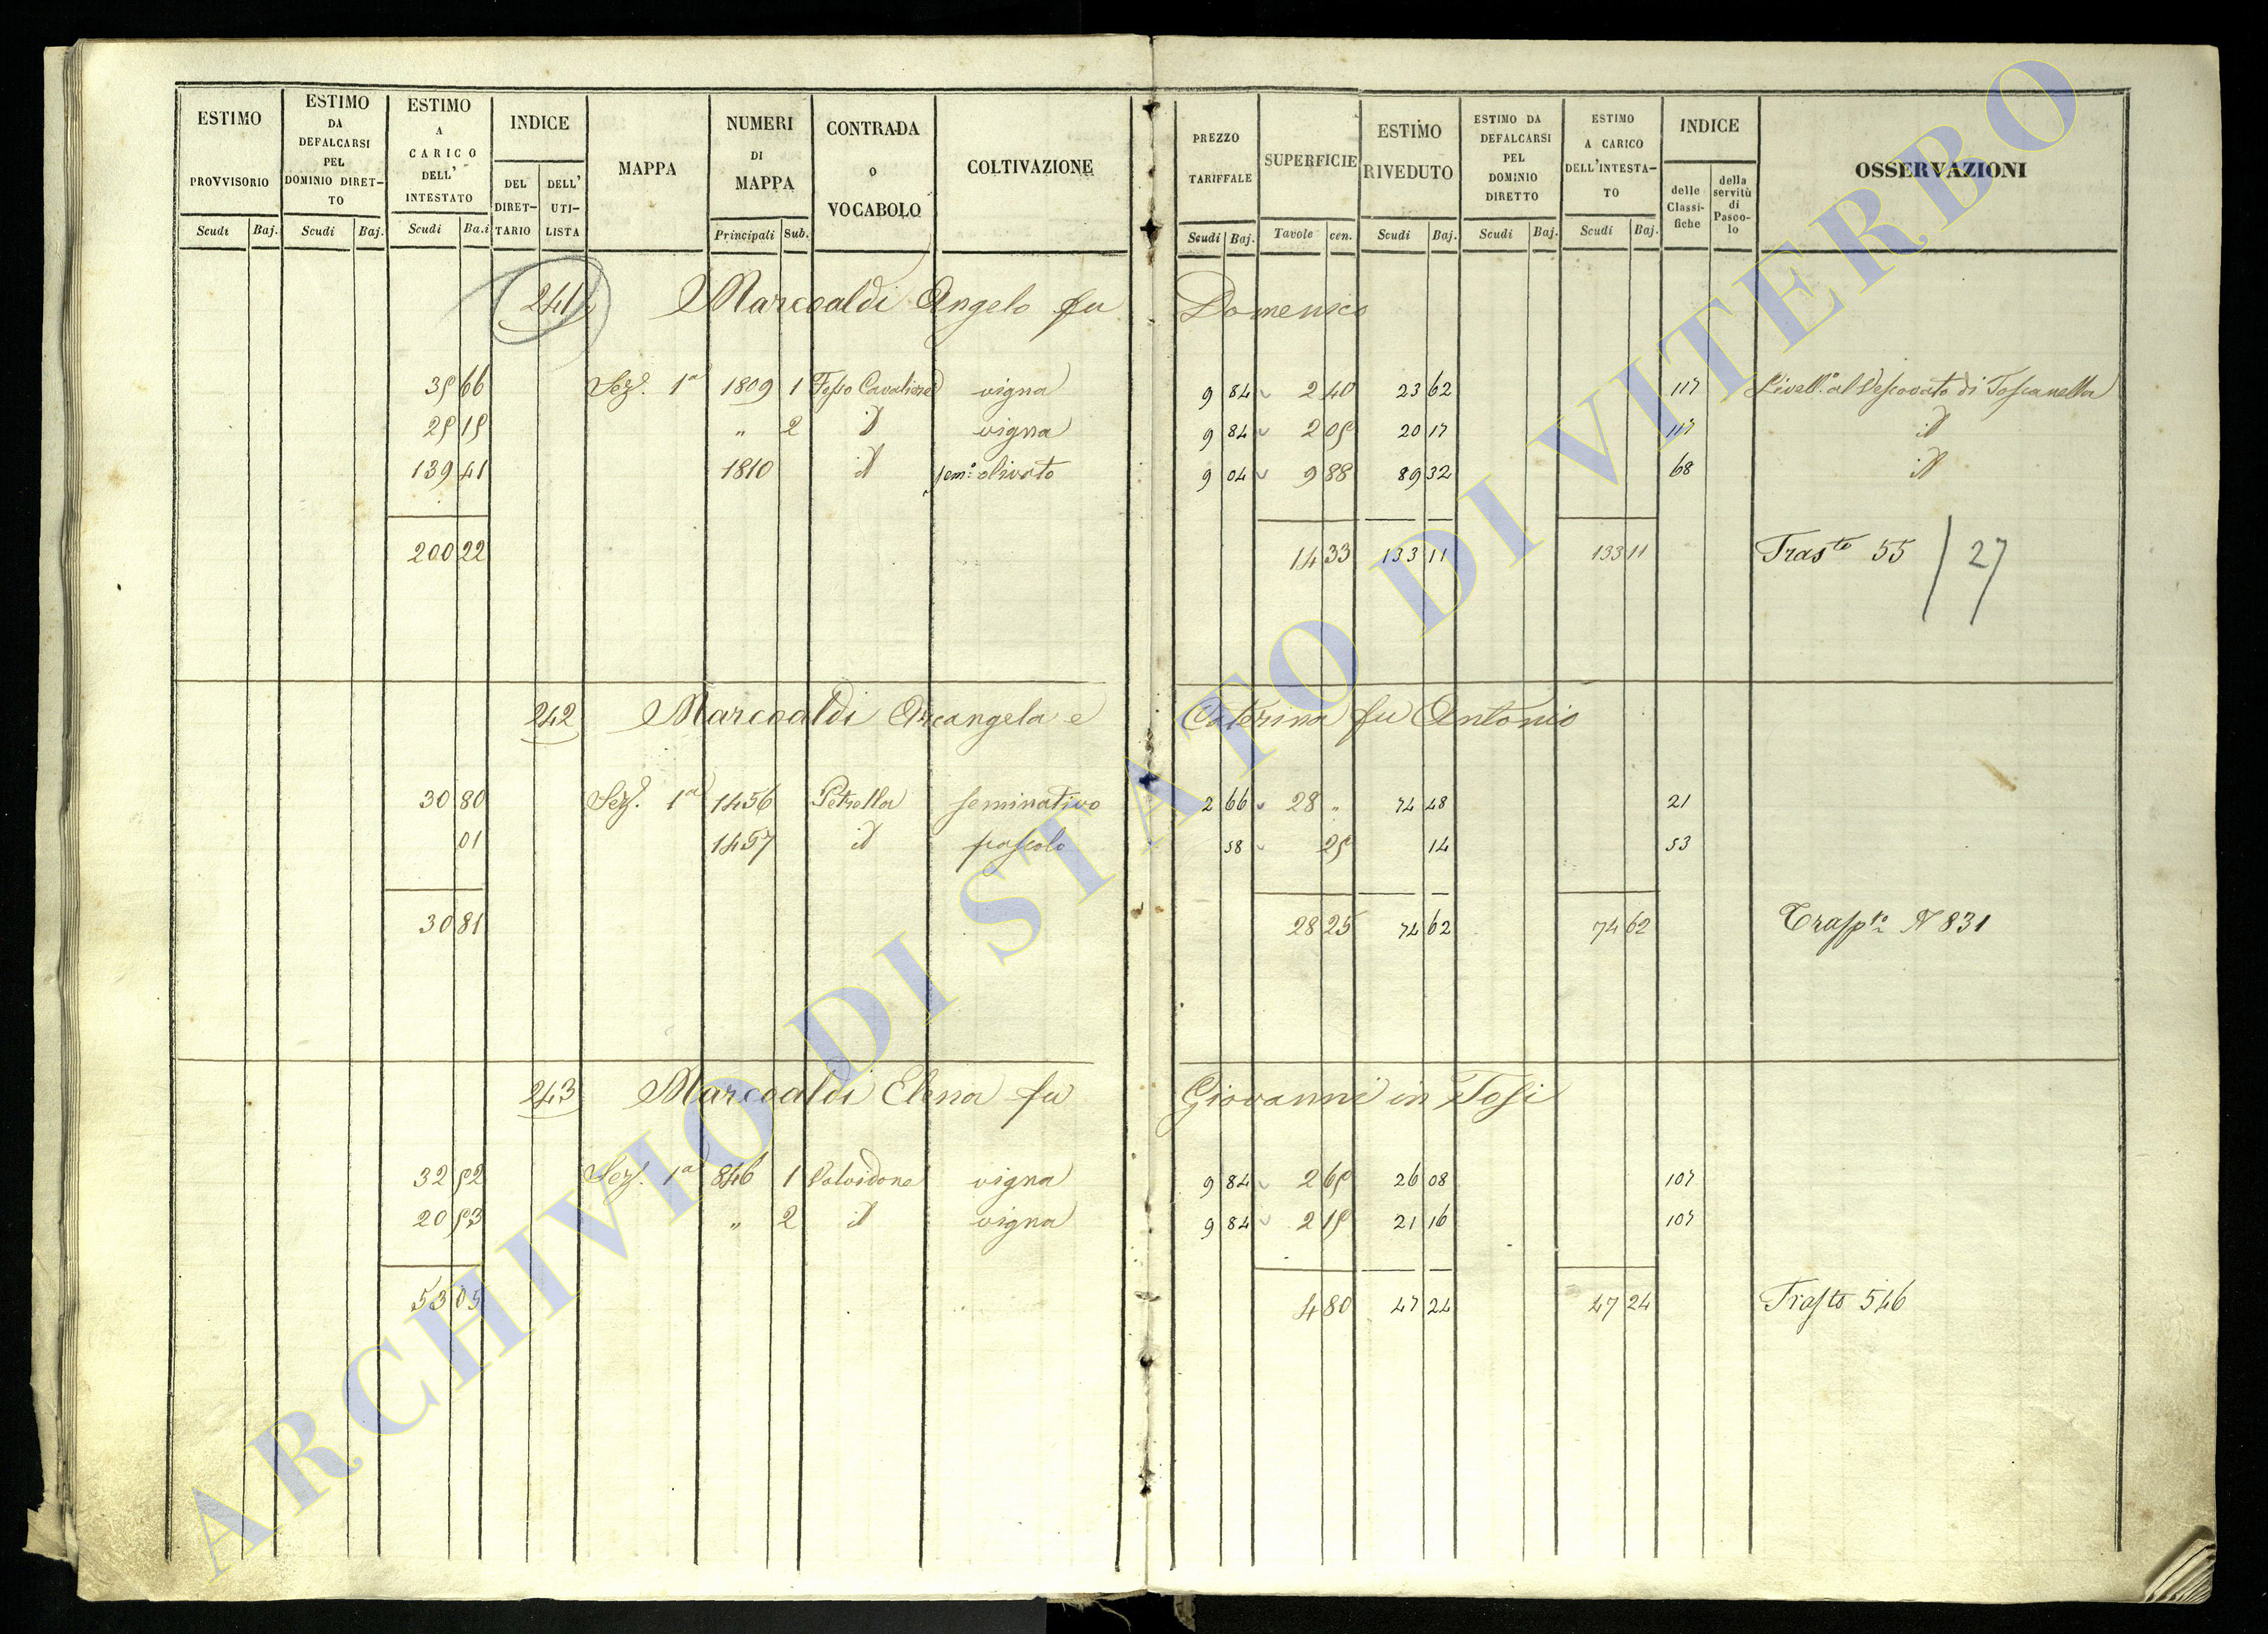 ESTIMO PROVVISORIO Scudi Baj.
ESTIMO DA DEFALCARSI PEL DOMINIO DIRET- TO Scudi Baj.
ESTIMO A CARICO DELL' INTESTATO Scudi Ba.i
INDICE DEL DIRET- TARIO DELL' UTI- LISTA
MAPPA
NUMERI DI MAPPA Principali Sub.
CONTRADA O VOCABOLO
COLTIVAZIONE
PREZZO TARIFFALE Scudi Baj.
SUPERFICIE Tavole cen.
ESTIMO RIVEDUTO Scudi Baj.
ESTIMO DA DEFALCARSI PEL DOMINIO DIRETTO Scudi Baj.
ESTIMO A CARICO DELL'INTESTA- TO Scudi Baj.
INDICE delle Classi- fiche della servitù di Pasco- lo
OSSERVAZIONI
241 Marcoaldi Angelo fu Domenico
35 66 Sez. 1a 1809 1 Fosso Cavaliere vigna 9 84 2 40 23 62 117 Livell.o al Vescovato di Toscanella
25 15 " 2 id vigna 9 84 2 05 20 17 117 id
139 41 1810 id sem: olivato 9 04 9 88 89 32 68 id
200 22 14 33 133 11 133 11 Trasto 55 / 27
242 Marcoaldi Arcangela e Caterina fu Antonio
30 80 Sez. 1a 1456 Petrella seminativo 2 66 28 " 74 48 21
01 1457 id pascolo 58 25 14 53
30 81 28 25 74 62 74 62 Trasp.to N 831
243 Marcoaldi Elena fu Giovanni in Tosi
32 52 Sez. 1a 846 1 Valvidone vigna 9 84 2 65 26 08 107
20 53 " 2 id vigna 9 84 2 15 21 16 107
53 05 4 80 47 24 47 24 Trasto 546
ARCHIVIO DI STATO DI VITERBO